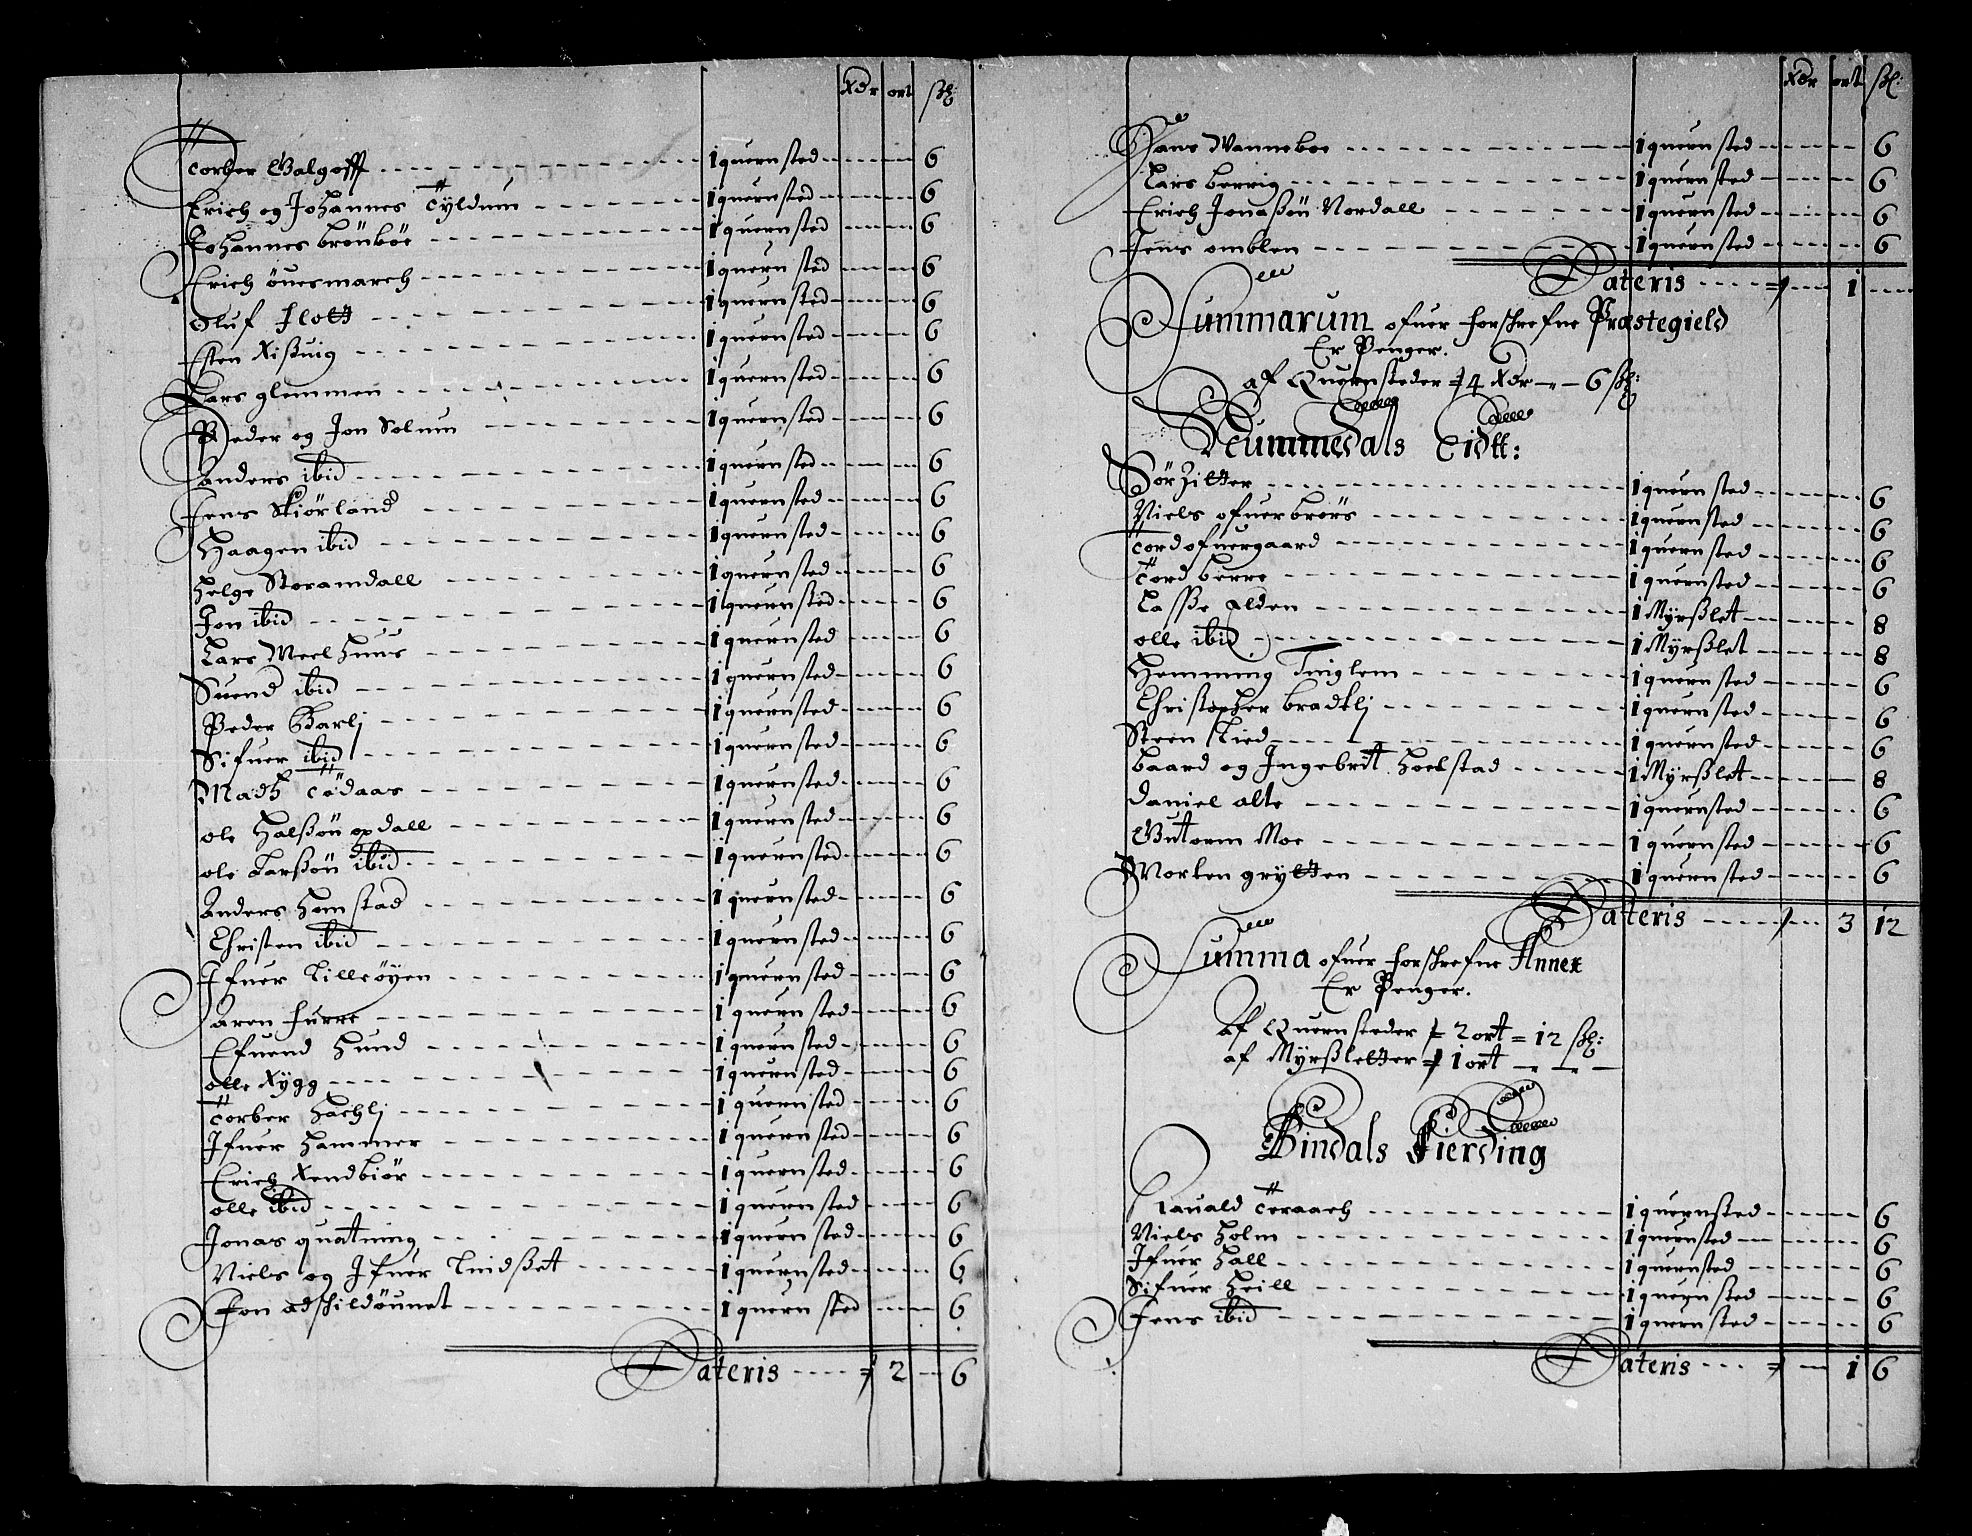 Xdr ort ßk:
Torber Galgofft 1 quernsted 6
Erich og Johannes Tyldum 1 quernsted 6
Johannes brönböe 1 quernsted 6
Erich öuesmarch 1 quernsted 6
Oluf Flott 1 quernsted 6
Esten Rißuig 1 quernsted 6
Lars glemmen 1 quernsted 6
Peder og Jon Solum 1 quernsted 6
Anders ibid 1 quernsted 6
Jens Skiörland 1 quernsted 6
Haagen ibid 1 quernsted 6
Helge Storamdall 1 quernsted 6
Jon ibid 1 quernsted 6
Lars Meelhuus 1 quernsted 6
Suend ibid 1 quernsted 6
Peder Barlj 1 quernsted 6
Sifuer ibid 1 quernsted 6
Madz Tödaas 1 quernsted 6
ole Halßön opdall 1 quernsted 6
ole Larßön ibid 1 quernsted 6
Anders Homstad 1 quernsted 6
Christen ibid 1 quernsted 6
Ifuer Lilleöyen 1 quernsted 6
Aren furre 1 quernsted 6
Efuend Hund 1 quernsted 6
olle Rygg 1 quernsted 6
Torber Hachlj 1 quernsted 6
Ifuer Hammer 1 quernsted 6
Erich Rendbiör 1 quernsted 6
olle ibid 1 quernsted 6
Jonas quatning 1 quernsted 6
Niels og Ifuer Lindßet 1 quernsted 6
Jon adschildöunet 1 quernsted 6
Lateris 2 6
Xdr ort ßk:
Hans Manneboe 1 quernsted 6
Lars berrig 1 quernsted 6
Erich Jonaßön Nordall 1 quernsted 6
Jens omblen 1 quernsted 6
Lateris 1
Summarum ofuer forschrefne Præstegield
Er Penger.
af Quernsteder 4 Xdr 6 ßk:
Nummedals Eidtt:
Sörhitter 1 quernsted 6
Niels ofuerbrörs 1 quernsted 6
Tord ofuergaard 1 quernsted 6
Tord berre 1 quernsted 6
Lasse Alden 1 Myrßlet 8
olle ibid 1 Myrßlet 8
Hemming Tinglem 1 quernsted 6
Christopher bradtlj 1 quernsted 6
Steen Lied 1 quernsted 6
baard og Ingebrit Hoelstad 1 Myrßlet 8
Daniel alte 1 quernsted 6
Gutorm Moe 1 quernsted 6
Morten grytten 1 quernsted 6
Lateris 3 12
Summa ofuer forschrefne Annex
Er Penger.
Af Quernsteder 2 ort 12 ßk:
af Myrßletter 1 ort
Bindals Fierding
Lauald Teraach 1 quernsted 6
Niels Holm 1 quernsted 6
Ifuer Hall 1 quernsted 6
Sifuer Heill 1 quernsted 6
Jens ibid 1 quernsted 6
Lateris 1 6